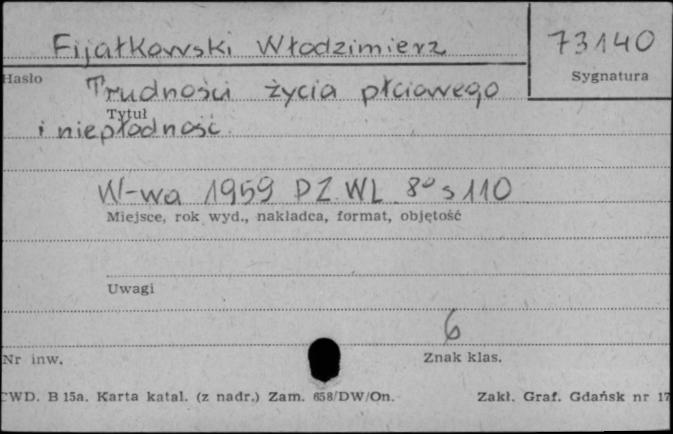 Fijałkowski Włodzimierz
73140
Hasło
Sygnatura
Trudności życia płciowego
Tytuł
i niepłodność.
W-wa 1959 PZWL 8° s 110
Miejsce, rok wyd., nakładca, format, objętość
Uwagi
6
Nr inw.
Znak klas.
CWD. B 15a. Karta katal. (z nadr.) Zam. 658/DW/On.
Zakł. Graf. Gdańsk nr 17